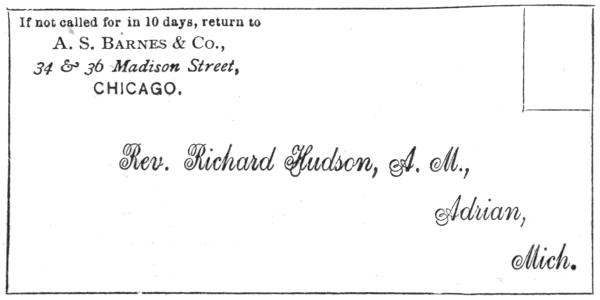 If not called for in 10 days, return to
A. S. BARNES & CO.,
34 & 36 Madison Street,
CHICAGO.
Rev. Richard Hudson, A. M.,
Adrian,
Mich.